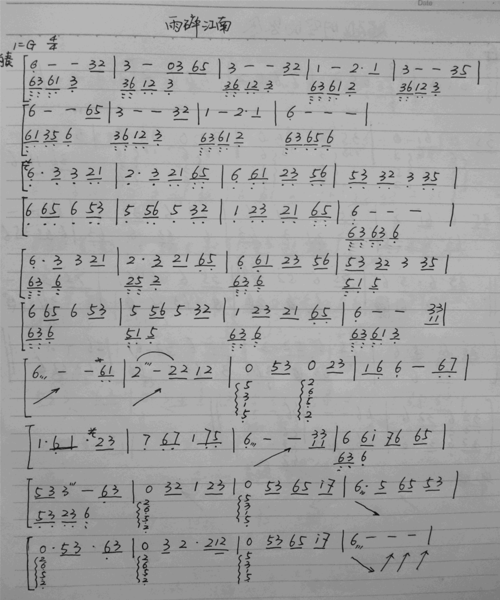 Date
雨碎江南
1=G 4/4
6 - - 32 | 3 - 03 65 | 3 - - 32 | 1 - 2·1 | 3 - - 35 |
6361 3 3612 3 3612 3 6361 2 3612 3
6 - - 65 | 3 - - 32 | 1 - 2·1 | 6 - - - |
6135 6 3612 3 6361 2 6365 6
6·3 3 21 | 2·3 21 65 | 6 61 23 56 | 53 32 3 35 |
6 65 6 53 | 5 56 5 32 | 1 23 21 65 | 6 - - - |
6363 6
6·3 3 21 | 2·3 21 65 | 6 61 23 56 | 53 32 3 35 |
63 6 25 2 63 6 51 5
6 65 6 53 | 5 56 5 32 | 1 23 21 65 | 6 - - 33 11 |
63 6 51 5 63 6 6361 3
6 - - 61 | 2 - 22 12 | 0 53 0 23 | 16 6 - 67 |
1·61·23 | 7 67 1 75 | 6 - - 33 11 | 6 61 76 65 |
63 6
53 3 - 63 | 0 32 1 23 | 0 53 65 17 | 6·5 65 53 |
53 23 6
0·53·63 | 0 3 2·212 | 0 53 65 17 | 6 - - - |